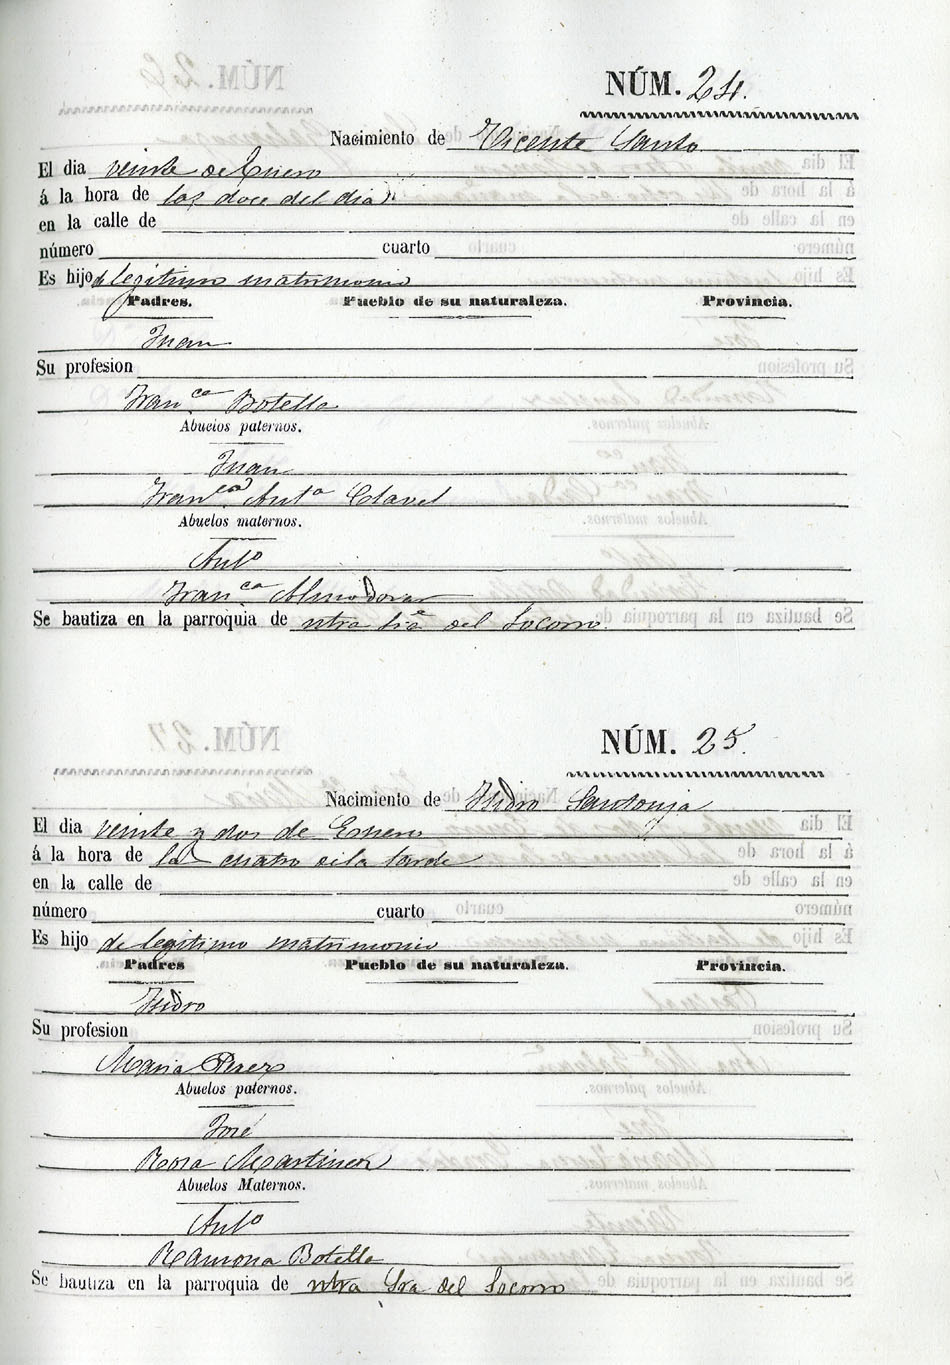 NÚM. 24.
Nacimiento de Vicente Santo
El dia veinte de Enero
á la hora de las doce del dia
en la calle de
número cuarto
Es hijo de legitimo matrimonio
Padres. Pueblo de su naturaleza. Provincia.
Juan
Su profesion
Franca Botella
Abuelos paternos.
Juan
Franca Anta Clavel
Abuelos maternos.
Anto
Franca Almodovar
Se bautiza en la parroquia de ntra Sra del Socorro
NÚM. 25.
Nacimiento de Isidro Santonja
El dia veinte y dos de Enero
á la hora de la cuatro de la tarde
en la calle de
número cuarto
Es hijo de legitimo matrimonio
Padres Pueblo de su naturaleza. Provincia.
Isidro
Su profesion
Maria Perez
Abuelos paternos.
José
Rosa Martinez
Abuelos Maternos.
Anto
Ramona Botella
Se bautiza en la parroquia de ntra Sra del Socorro